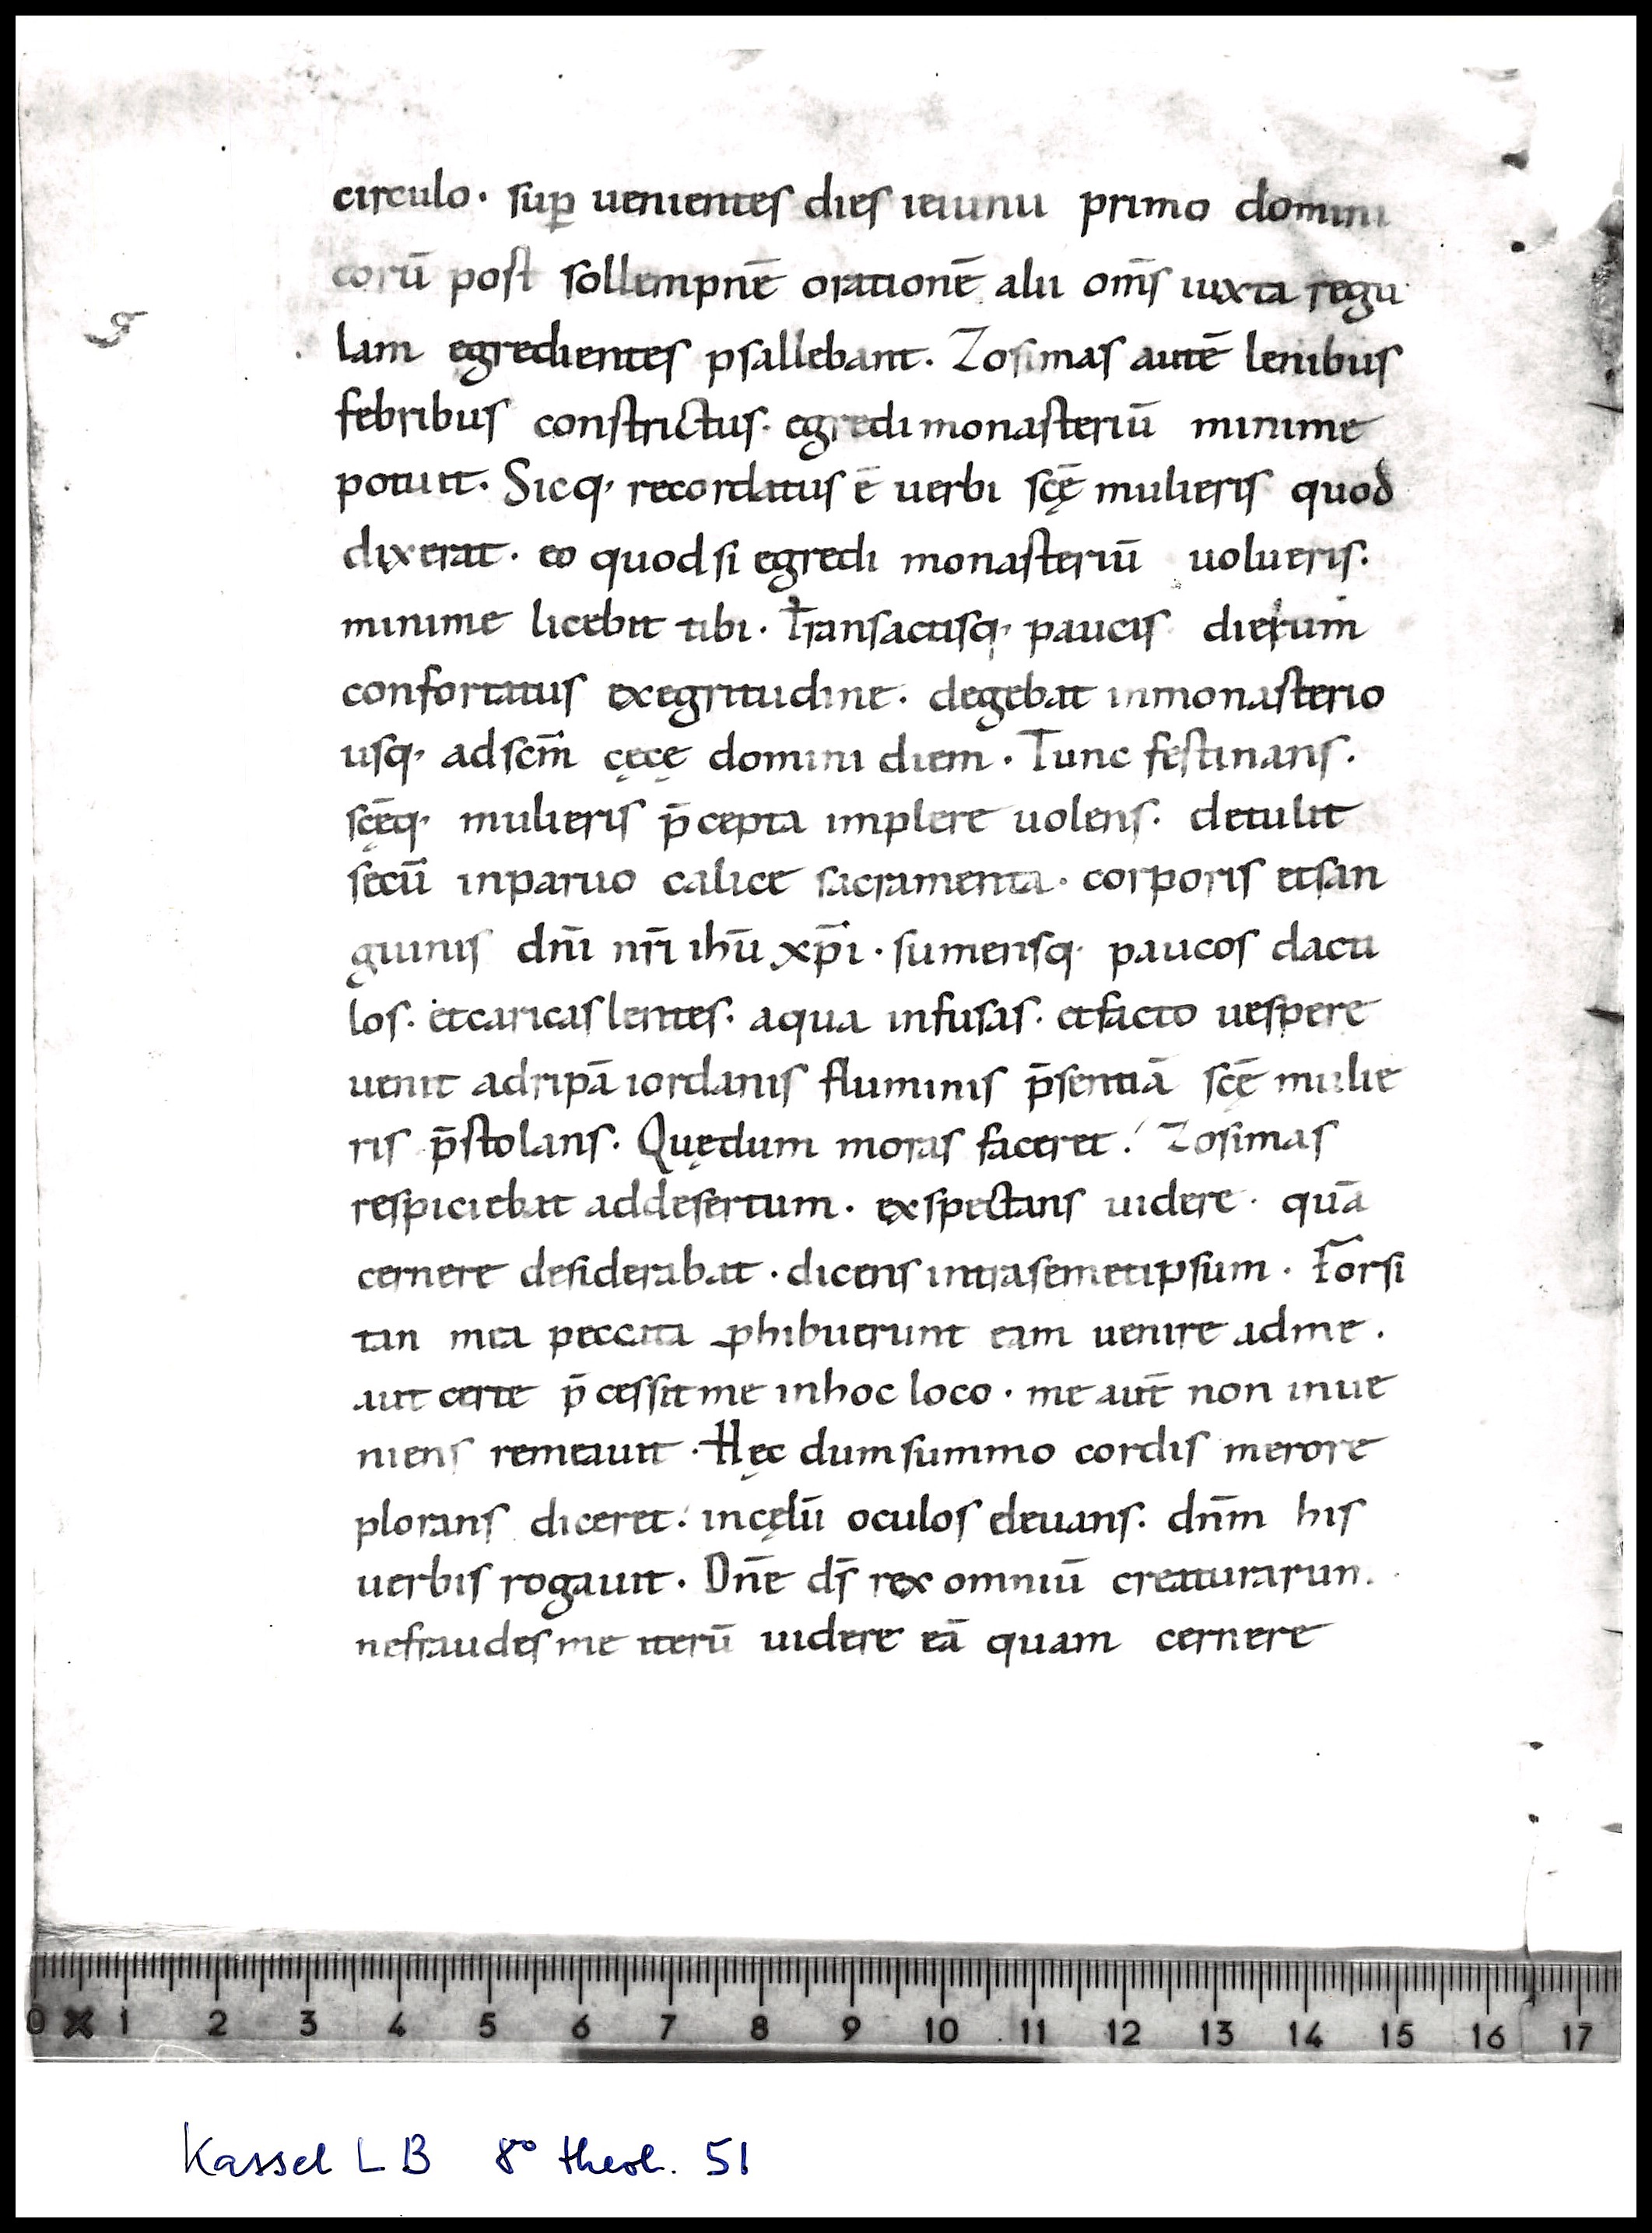 circulo. sup̲ uenientes dies ieiunii primo domini
corū post sollempnē orationē alii om̄s iuxta regu
lam egredientes psallebant. Zosimas autē lenibus
febribus constrictus. egredi monasteriū minime
potuit. Sicq· recordatus ē uerbi scę̄ mulieris quod
dixerat. eo quod si egredi monasteriū uolueris.
minime licebit tibi. Transactisq· paucis dierum
confortatus exegritudine. degebat inmonasterio
usq· adscm̄ cęcę domini diem. Tunc festinans.
scę̄q· mulieris p̄cepta implere uolens. detulit
secū inparuo calice sacramenta. corporis etsan
guinis dn̄i nr̄i ihū xp̄i. sumensq· paucos dacti
los. etcaricas lentes. aqua infusas. etfacto uespere
uenit adripā iordanis fluminis p̄sentiā scę̄ mulie
ris p̄stolans. Quędum moras faceret. Zosimas
respiciebat addesertum. exspectans uidere. quā
cernere desiderabat. dicens intrasemetipsum. Forsi
tan mea peccata ꝓhibuerunt eam uenire adme.
aut certe p̄cessit me inhoc loco. me aut̄ non inue
niens remeauit. Hęc dum summo cordis merore
plorans diceret. incęlū oculos eleuans. dn̄m his
uerbis rogauit. Dn̄e ds̄ rex omniū creaturarum.
nefraudes me iterū uidere eā quam cernere
0 1 2 3 4 5 6 7 8 9 10 11 12 13 14 15 16 17
Kassel LB 8° theol. 51